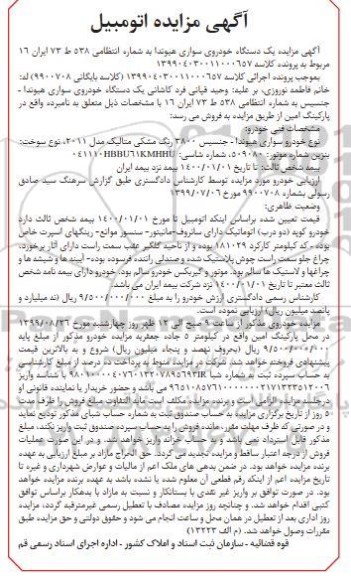 آگهی مزایده اتومبیل
آگهی مزایده یک دستگاه خودروی سواری هیوندا به شماره انتظامی ۵۳۸ ط ۷۳ ایران ۱۶
مربوط به پرونده کلاسه ۱۳۹۹۰۴۰۳۰۰۱۱۰۰۰۶۵۷
بموجب پرونده اجرائی کلاسه ۱۳۹۹۰۴۰۳۰۰۱۱۰۰۰۶۵۷ (کلاسه بایگانی ۹۹۰۰۷۰۸) له:
خانم فاطمه نوروزی، بر علیه: وحید قیانی فرد کاشانی یک دستگاه خودروی سواری هیوندا -
جنسیس به شماره انتظامی ۵۳۸ ط ۷۳ ایران ۱۶ با مشخصات ذیل متعلق به نامبرده واقع در
پارکینگ امین از طریق مزایده به فروش می رسد:
مشخصات فنی خودرو:
نوع خودرو سواری هیوندا - جنسیس ۳۸۰۰ رنگ مشکی متالیک مدل ۲۰۱۱، نوع سوخت:
بنزین شماره موتور: ۵۰۹۰۸۰، شماره شاسی:
بیمه شخص ثالث: تا تاریخ ۱۴۰۰/۰۱/۰۱ بیمه نزد بیمه ایران
ارزیابی خودرو مورد مزایده توسط کارشناس دادگستری طبق گزارش سرهنگ سید صادق
رسولی بشماره ۹۹۰۰۷۰۸ مورخ ۱۳۹۹/۰۷/۰۶
وضعیت ظاهری:
قیمت تعیین شده براساس اینکه اتومبیل تا مورخ ۱۴۰۰/۰۱/۰۱ بیمه شخص ثالث دارد
خودرو کوپه (دو درب) اتوماتیک دارای سانروف-مانیتور- سنسور موانع- رینگهای اسپرت خاص
بوده - که کیلومتر کارکرد ۱۸۱۰۲۹ بوده و از ناحیه گلگیر عقب سمت راست دارای آثار برخورد،
چراغ جلو سمت راست جوش پلاستیک شده و صندلی راننده فرسوده بوده- آیینه ها و شیشه ها و
چراغها و لاستیک ها سالم بود. موتور و گیربکس خودرو سالم بود. خودرو دارای بیمه نامه شخص
ثالث معتبر تا تاریخ ۱۴۰۰/۰۱/۰۱ نزد شرکت بیمه ایران می باشد.
کارشناس رسمی دادگستری ارزش خودرو را به مبلغ ۹/۵۰۰/۰۰۰/۰۰۰ ریال (نه میلیارد و
پانصد میلیون ریال) ارزیابی نموده است.
مزایده خودروی مذکور از ساعت ۹ صبح الی ۱۲ ظهر روز چهارشنبه مورخ
در محل پارکینگ امین واقع در کیلومتر ۵ جاده جعفریه مزایده خودرو مذکور از مبلغ پایه
۹/۵۰۰/۰۰۰/۰۰۰ ریال (بحروف نهصد و پنجاه میلیون ریال) شروع و به بالاترین قیمت
پیشنهادی فروخته خواهد شد. شرکت در مزایده منوط به پرداخت ده درصد از مبلغ کارشناسی
به حساب سپرده ثبت به شماره شبا و با شناسه واریز
می باشد و حضور خریدار یا نماینده قانونی او
در جلسه مزایده الزامی است و برنده مزایده مکلف است مابه التفاوت مبلغ فروش را ظرف مدت
۵ روز از تاریخ برگزاری مزایده به حساب صندوق ثبت به شماره حساب شبای مذکور تودیع نماید
و در صورتی که ظرف مهلت مقرر، مانده فروش را به حساب سپرده صندوق ثبت واریز نکند، مبلغ
مذکور قابل استرداد نمی باشد و به حساب خزانه واریز خواهد شد. و در این صورت عملیات
فروش از درجه اعتبار ساقط و مزایده تجدید می گردد. حق الحراج مازاد بر مبلغ ارزیابی به عهده
برنده مزایده خواهد بود. در ضمن بدهی های ملک اعم از مالیات و عوارض شهرداری و غیره تا
تاریخ مزایده اعم از اینکه رقم قطعی آن معلوم شده یا نشده باشد به عهده برنده مزایده خواهد
بود. در صورت توافق بر واریز غیر نقدی با بستانکار و نسبت به مازاد با بدهکار براساس توافق
کتبی اقدام خواهد شد. و چنانچه روز مزایده مصادف با تعطیل رسمی غیرمترقبه گردد، مزایده
روز اداری بعد از تعطیل در همان محل و ساعت انجام می شود و حقوق دولتی و حق مزایده طبق
مقررات وصول خواهد شد. (م الف ۱۳۲۲۳)
قوه قضائیه - سازمان ثبت اسناد و املاک کشور - اداره اجرای اسناد رسمی قم